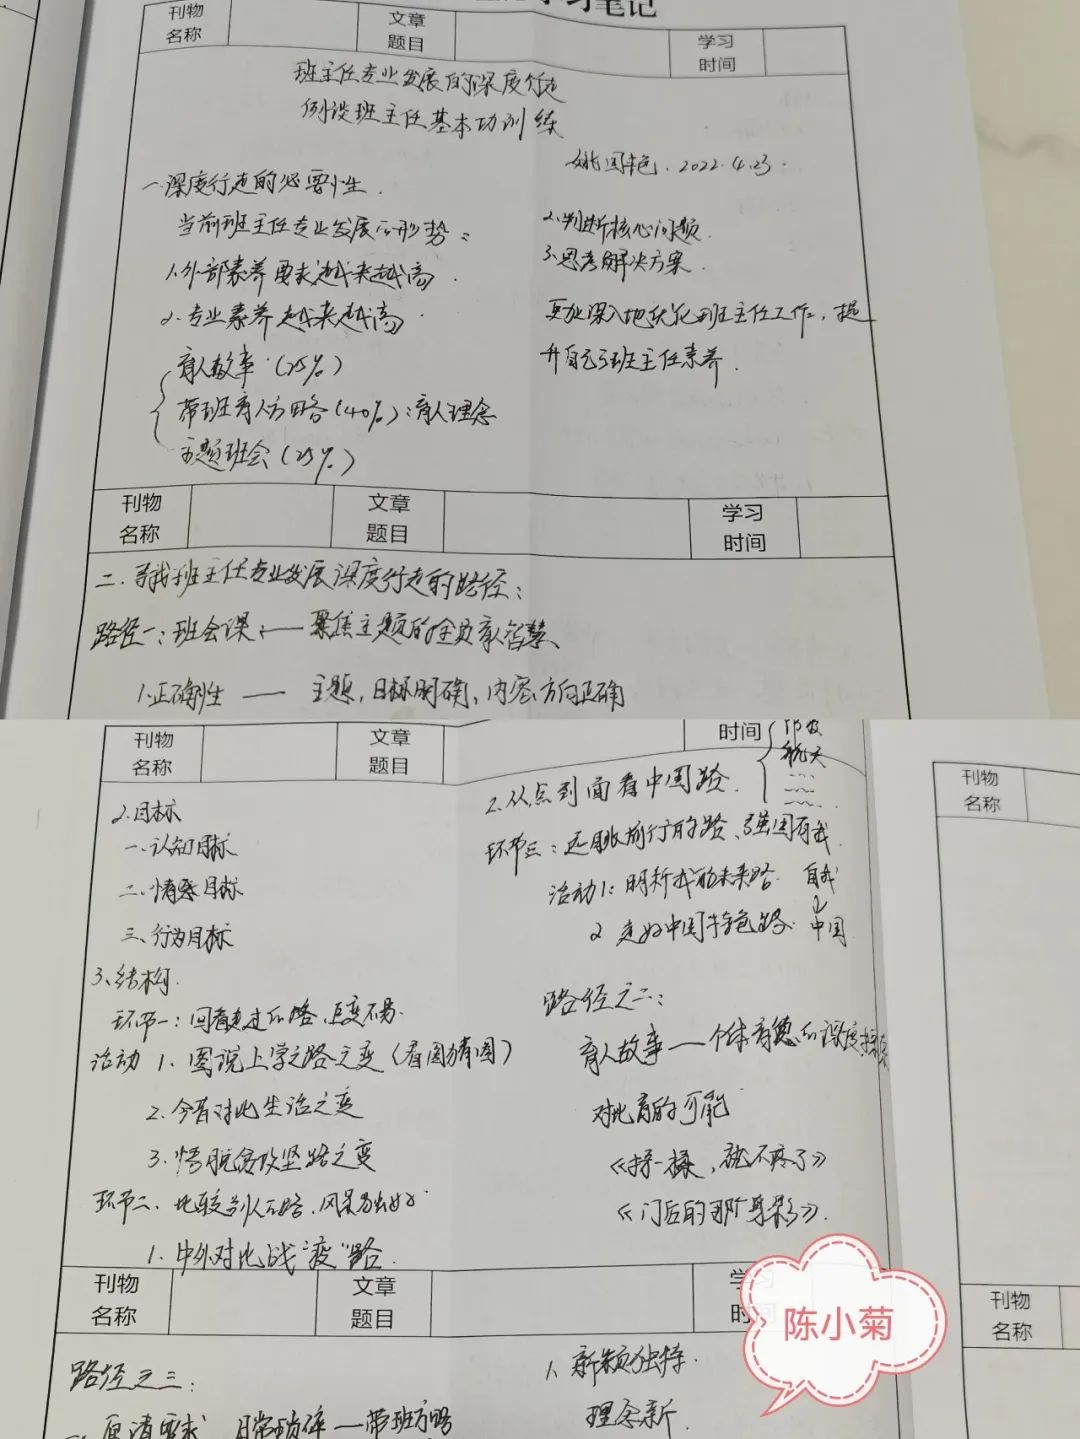 学习笔记
刊物名称 文章题目 学习时间
班主任专业发展的深度行走
例谈班主任基本功训练
姚国艳.2022.4.23.
一.深度行走的必要性.
当前班主任专业发展的形势：
1.外部素养要求越来越高.
2.专业素养越来越高.
育人故事.(25%)
带班育人方略(40%):育人理念
主题班会(25%)
2.判断核心问题.
3.思考解决方案.
更加深入地优化班主任工作，提
升自己的班主任素养.
刊物名称 文章题目 学习时间
二.寻找班主任专业发展深度行走的路径：
路径一：班会课：——聚焦主题的全员育人智慧、
1.正确性 —— 主题，目标明确，内容、方向正确
刊物名称 文章题目 时间
2.目标
一.认知目标
二.情感目标
三、行为目标
3、结构.
环节一：回看走过的路，巨变不易.
活动 1. 图说上学之路之变（看图猜图）
2.今昔对比生活之变
3.悟脱贫攻坚路之变
环节二、比较别人的路、风景独好
1.中外对比战“疫”路.
航天
2.从点到面看中国路.
环节三：远眺前行的路、强国有我.
活动1:明晰我的未来路. 自我
2 走好中国特色路. 中国
路径之二：
育人故事——个体育德的深度探索
对比育的可能
《揉一揉，就不疼了》
《门后的那个身影》.
刊物名称 文章题目 学习时间
路径之三：
厘清需求 日常琐碎——带班方略
1.新颖独特.
理念新.
刊物名称
刊物名称
陈小菊